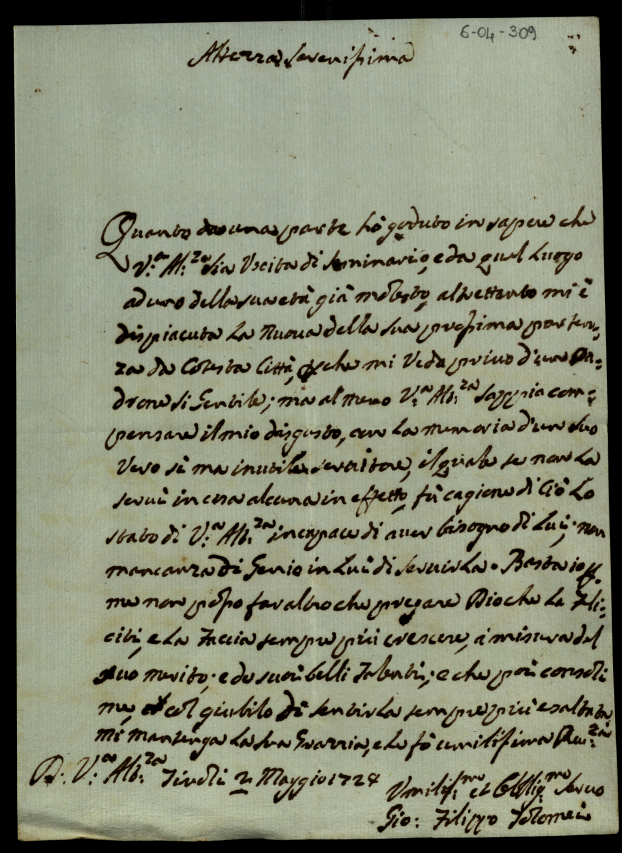 6-04-309
Altezza Serenissima
Quanto da una parte hò goduto in sapere che
V.ª Alt.za sia Uscita di seminario, e da quel Luogo
ad uno della sua età già molesto, altrettanto mi è
dispiacuta La Nuova della sua prossima parten-
za da Cotesta Città, che mi Veda privo d'un Pa-
drone sì Gentile; ma al meno V.ª Alt.za sappia com-
pensare il mio disgusto, con La memoria d'un suo
Vero sì ma inutile servitore, il quale se non La
servì in cosa alcuna in effetto, fù cagione di ciò Lo
stato di V.ª Alt.za incapace di aver bisogno di Lui; non
mancanza di Genio in Lui di servirLa. Basta io
me non posso far altro che pregare Dio che La Feli-
citi, e La Faccia sempre più crescere, à misura del
suo merito, e de suoi belli Talenti; e che poi consoli
me, col giubilo di sentirLa sempre più esaltata,
Mi mantenga La sua Grazia, e Le fò umilissima Riu.za
D. V.ª Alt.za Tivoli 2 Maggio 1728
Umilis.mo et Obblig.mo Servo
Gio: Filippo Tolomei